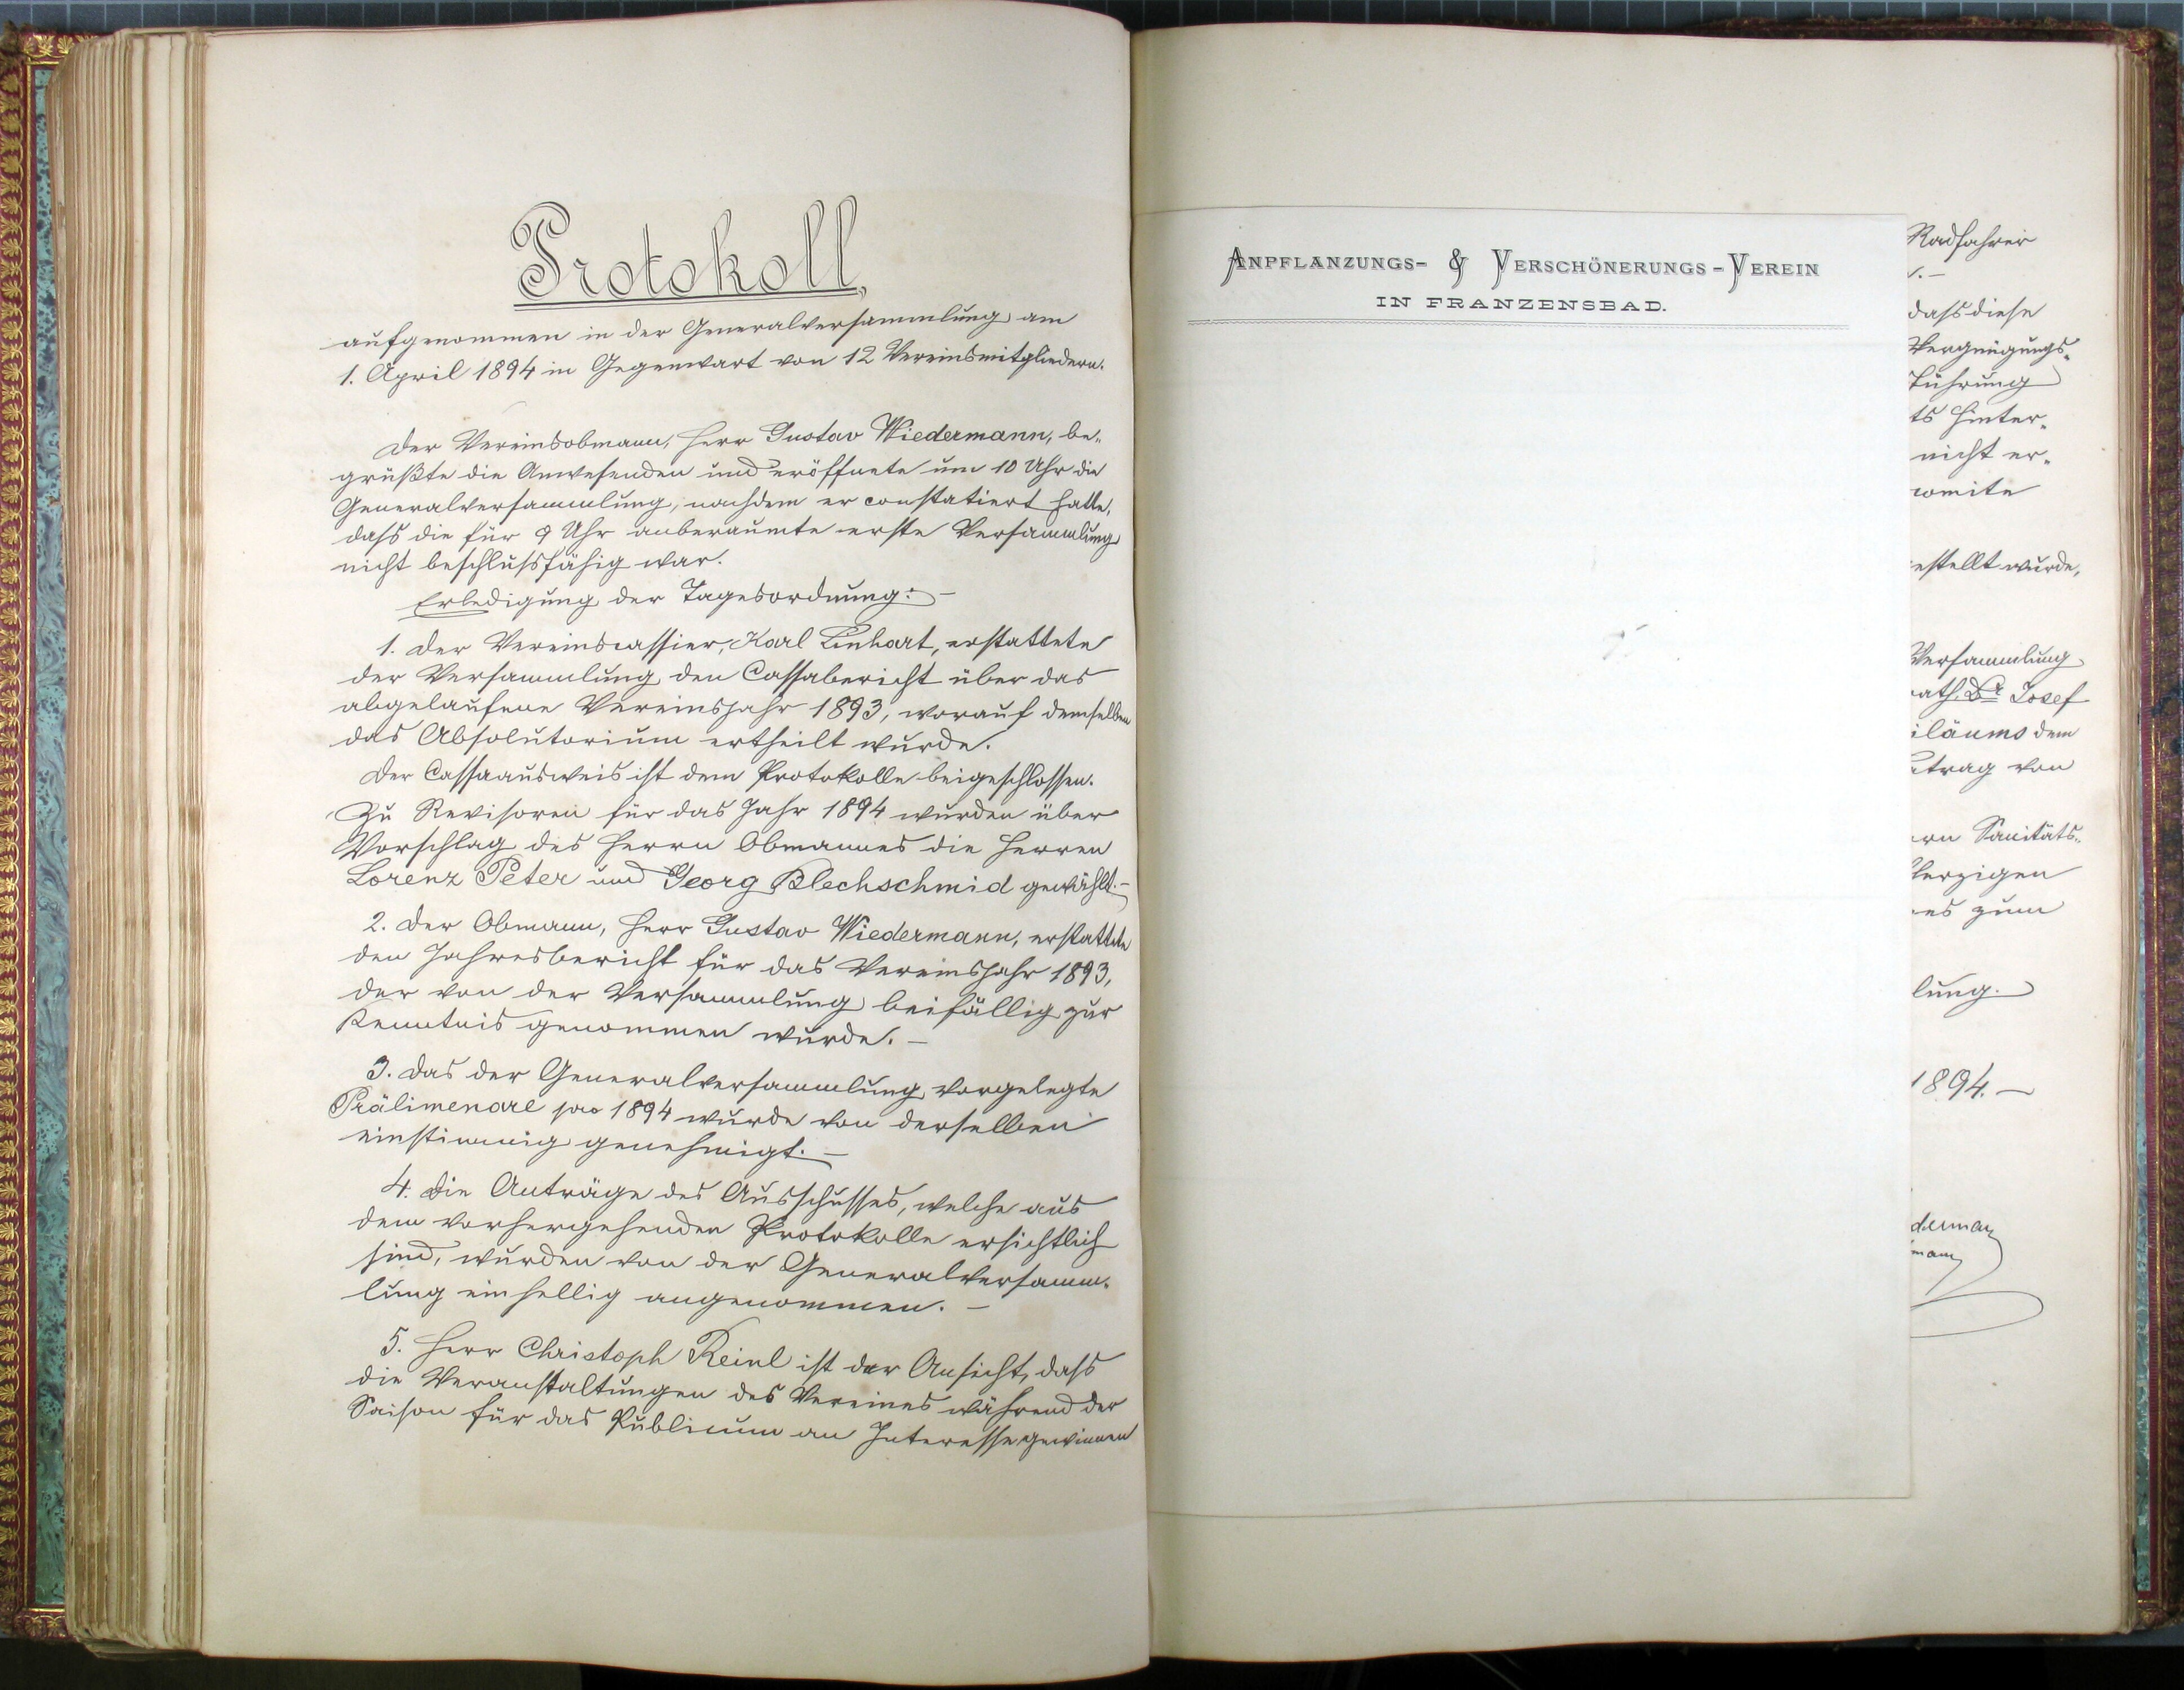 Protokoll,
aufgenommen in der Generalversammlung am
1. April 1894 in Gegenwart von 12 Vereinsmitgliedern.
Der Vereinsobmann, Herr Gustav Wiedermann, be„
grüßte die Anwesenden und eröffnete um 10 Uhr die
Generalversammlung, nachdem er constatiert hatte,
dass die für 9 Uhr anberaumte erste Versammlung
nicht beschlussfähig war.
Erledigung der Tagesordnung: –
1. Der Vereinscassier, Karl Linhart, erstattete
der Versammlung den Cassabericht über das
abgelaufene Vereinsjahr 1893, worauf demselben
das Absolutorium ertheilt wurde.
Der Cassaausweis ist dem Protokolle beigeschlossen.
Zu Revisoren für das Jahr 1894 wurden über
Vorschlag des Herrn Obmannes die Herren
Lorenz Peter und Georg Blechschmid gewählt. –
2. Der Obmann, Herr Gustav Wiedermann, erstattete
den Jahresbericht für das Vereinsjahr 1893,
der von der Versammlung beifällig zur
Kenntnis genommen wurde. –
3. Das der Generalversammlung vorgelegte
Prälimenare pro 1894 wurde von derselben
einstimmig genehmigt. –
4. Die Anträge des Ausschusses, welche aus
dem vorhergehenden Protokolle ersichtlich
sind, wurden von der Generalversamm„
lung einhellig angenommen. –
5. Herr Christoph Reinl ist der Ansicht, dass
die Veranstaltungen des Vereines während der
Saison für das Publicum an Interesse gewinnen
ANPFLANZUNGS- & VERSCHÖNERUNGS-VEREIN
IN FRANZENSBAD.
Radfahrer
dass diese
Vergnügungs„
führung
ts hinter„
nicht er„
comite
estellt wurde,
Versammlung
ath. Dr Josef
iläums dem
trag von
rn Sanitäts„
herzigen
es zum
lung.
1894. –
derman
mann